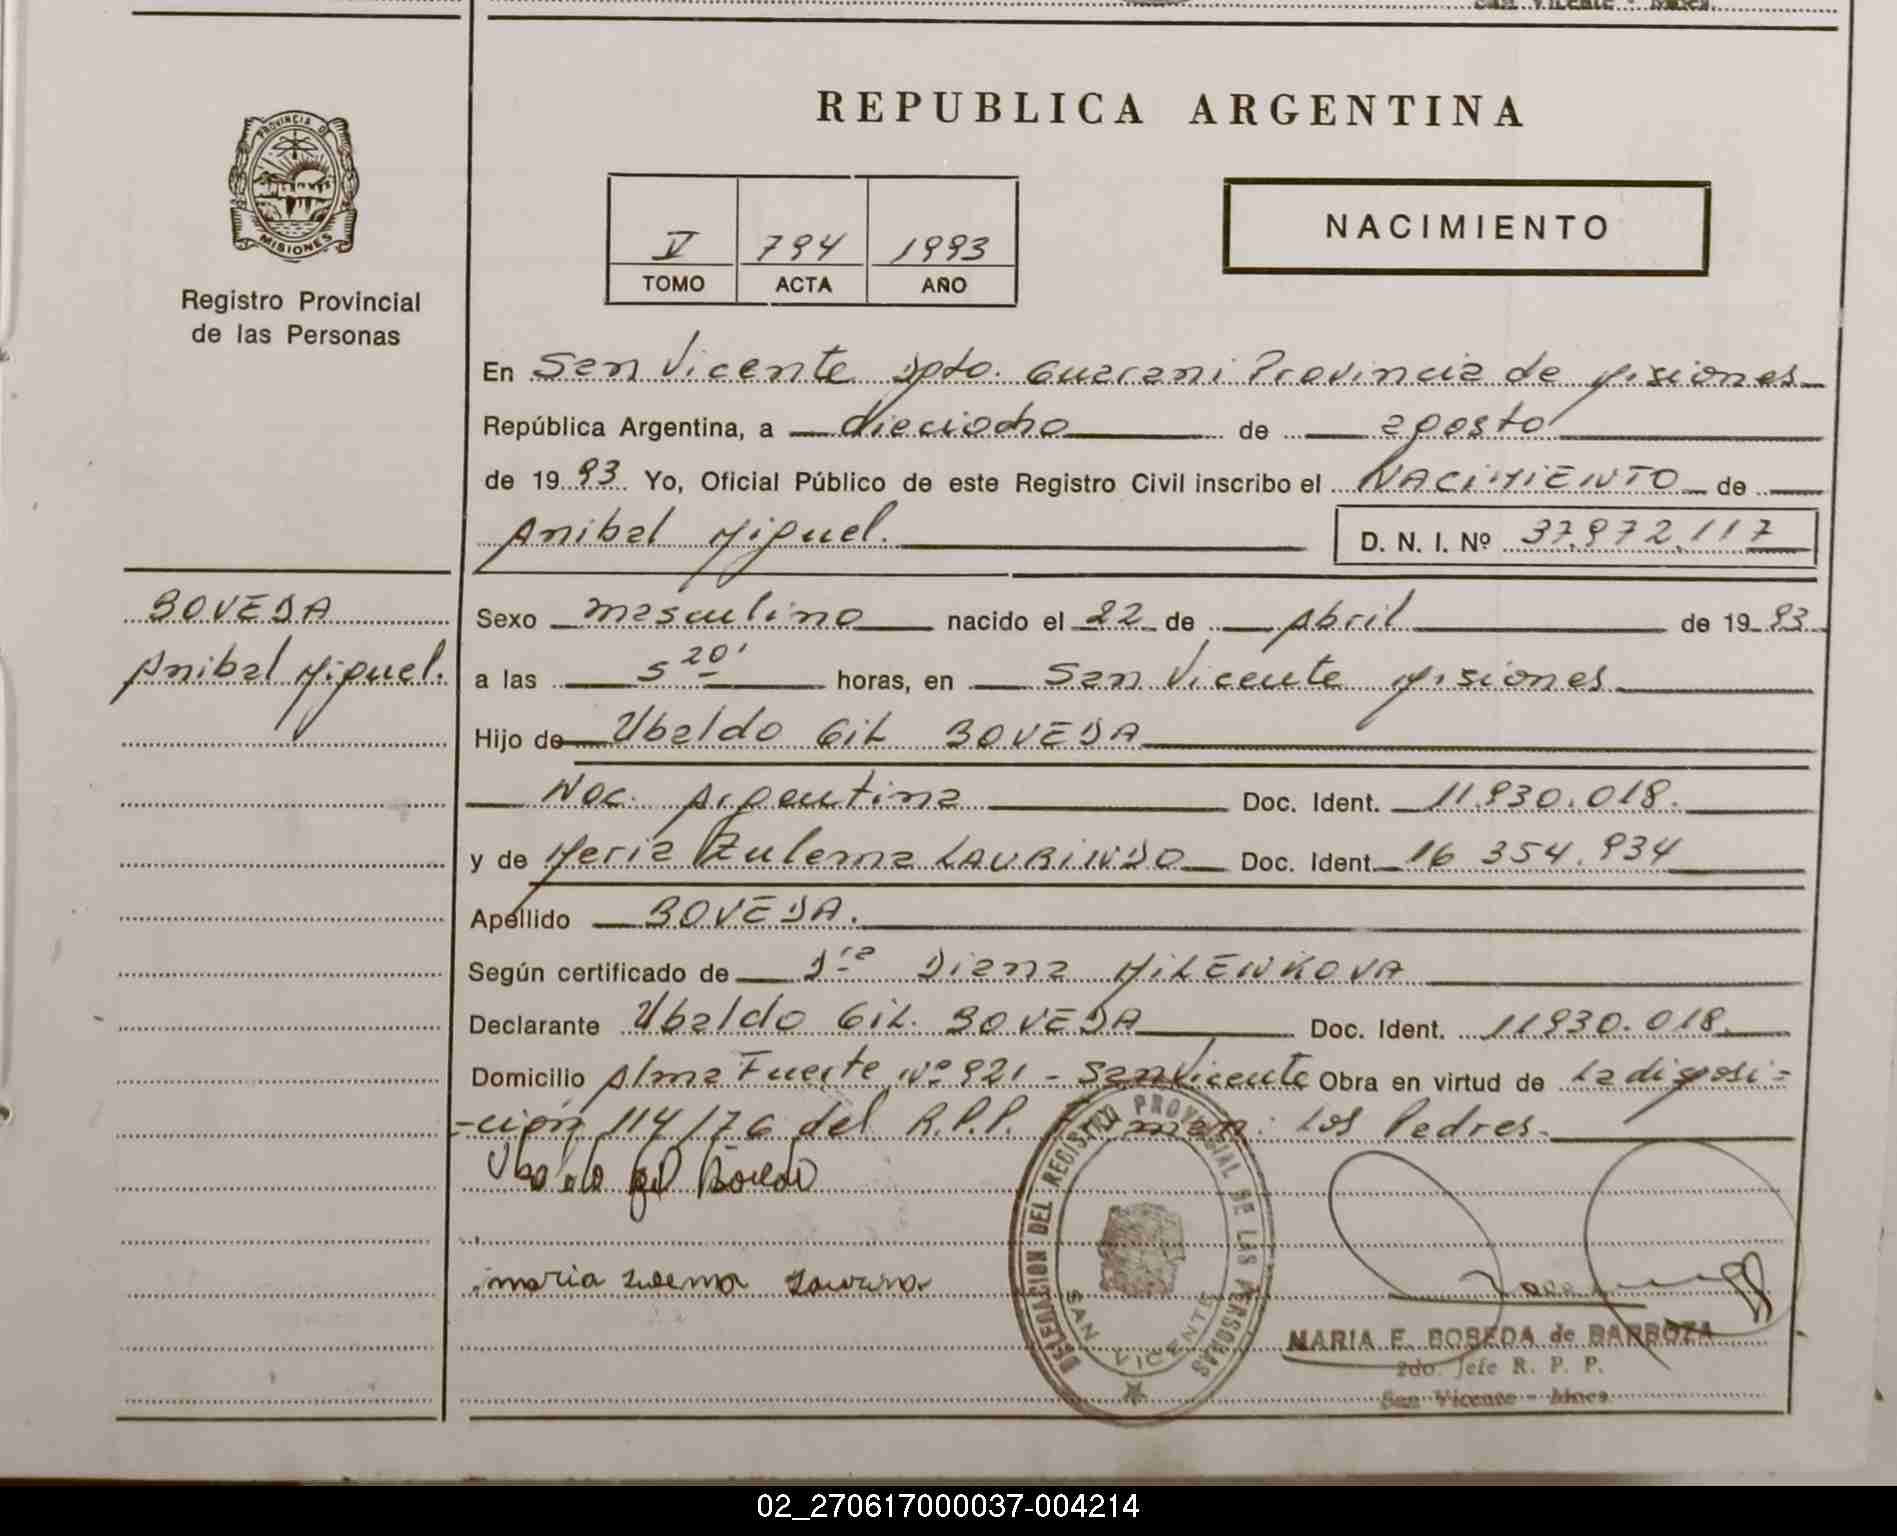 San Vicente - Mnes.
REPUBLICA ARGENTINA
PROVINCIA DE
MISIONES
Registro Provincial
de las Personas
V 794 1993
TOMO ACTA AÑO
NACIMIENTO
En San Vicente Dpto. Guarani Provincia de Misiones
República Argentina, a dieciocho de agosto
de 1993 Yo, Oficial Público de este Registro Civil inscribo el NACIMIENTO de
Anibal Miguel. D. N. I. Nº 37.972.117
BOVEDA
Anibal Miguel.
Sexo masculino nacido el 22 de Abril de 1993
a las 5 20' horas, en San Vicente Misiones
Hijo de Ubaldo Gil BOVEDA
Nac. Argentina Doc. Ident. 11.930.018.
y de Maria Zulema LAURINDO Doc. Ident. 16 354.934
Apellido BOVEDA.
Según certificado de Dra Diana MILENKOVA
Declarante Ubaldo Gil. BOVEDA Doc. Ident. 11930.018.
Domicilio Alma Fuerte Nº 921 - San Vicente Obra en virtud de La disposi-
-ción 114/76 del R.P.P. Firman: Los Padres.
Ubaldo gil Boveda
maria zulema
DELEGACION DEL REGISTRO PROVINCIAL DE LAS PERSONAS
SAN VICENTE
MARIA E. BOBEDA de BARBOZA
2do. Jefe R. P. P.
San Vicente - Mnes.
02_270617000037-004214